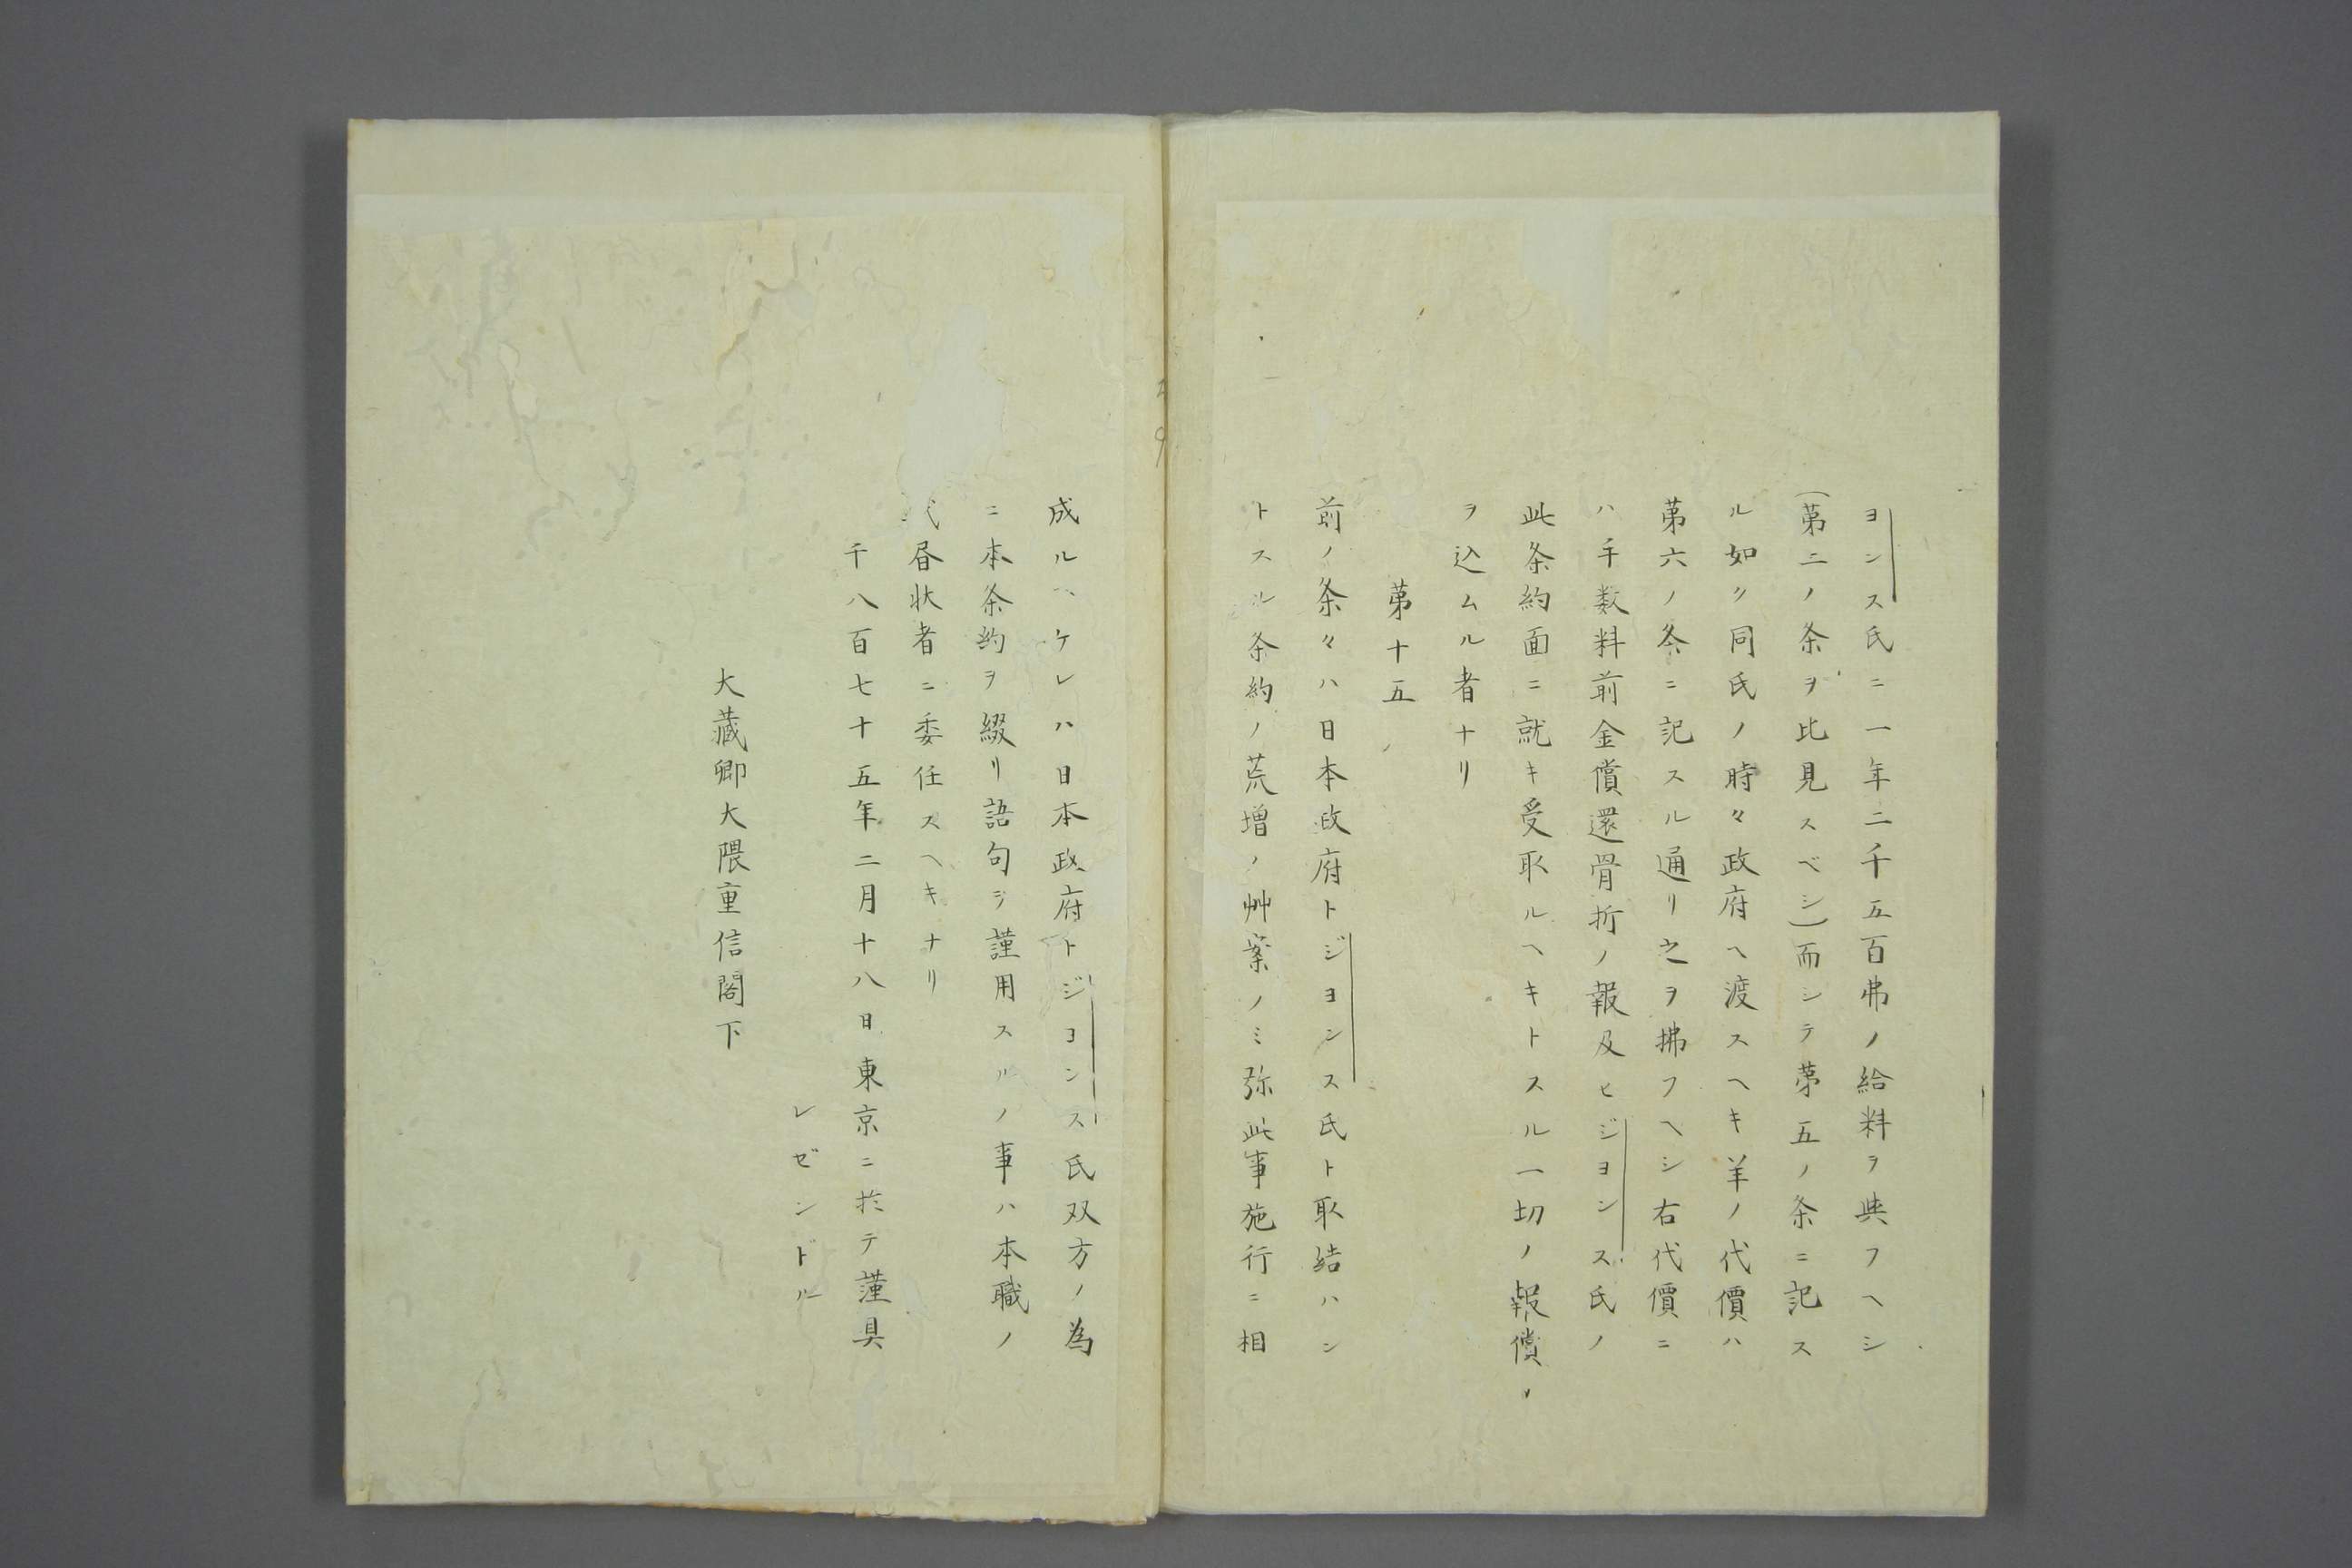 ヨンス氏ニ一年二千五百弗ノ給料ヲ與フヘシ
(第二ノ条ヲ比見スベシ)而シテ第五ノ条ニ記ス
ル如ク同氏ノ時々政府ヘ渡スヘキ羊ノ代價ハ
第六ノ条ニ記スル通リ之ヲ拂フヘシ右代價ニ
ハ手数料前金償還骨折ノ報及ヒジヨンス氏ノ
此条約面ニ就キ受取ルヘキトスル一切ノ報償ノ
ヲ込ムル者ナリ
第十五
前ノ条々ハ日本政府トジヨンス氏ト取結ハン
トスル条約ノ荒増ノ艸案ノミ弥此事施行ニ相
成ルヘケレハ日本政府トジヨンス氏双方ノ為
ニ本条約ヲ綴リ語句ヲ謹用スルノ事ハ本職ノ
代昏状者ニ委任スヘキナリ
千八百七十五年二月十八日東京ニ於テ謹具
レゼンドル
大藏卿大隈重信閣下